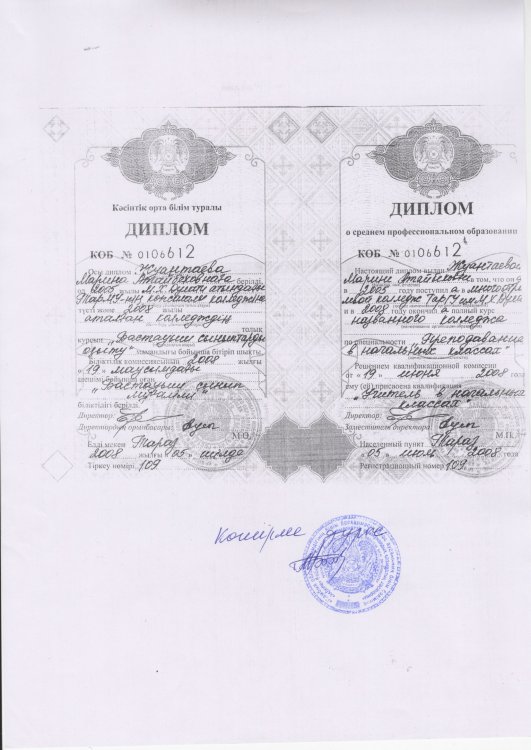 Кәсіптік орта білім туралы
ДИПЛОМ
КОБ № 0106612
Осы диплом Жуантаева
Марина берілді
2005 жылы М.Х. Дулати атындағы
түсті және 2008 жылы
аталған колледждің
толық
курсын „Бастауыш сыныптарды
оқыту" мамандығы бойынша бітіріп шықты.
Біліктілік комиссиясының 2008 жылғы
«19» маусымдағы
шешімі бойынша оған
„Бастауыш сынып
мұғалімі"
біліктілігі берілді.
Директор:
Директордың орынбасары:
М.О.
Елді мекен Тараз
2008 жылғы «05» шілде
Тіркеу нөмірі 109
ДИПЛОМ
о среднем профессиональном образовании
КОБ № 0106612
Настоящий диплом выдан Жуантаевой
Марине в том, что он
в 2005 году поступил а в
колледж ТарГУ им М.Х. Дулати
и в 2008 году окончил а полный курс
названного колледжа
по специальности „Преподавание
в начальных классах"
Решением квалификационной комиссии
от «19» июня 2008 года
ему (ей) присвоена квалификация
„Учитель в начальных
классах"
Директор:
Заместитель директора:
М.П.
Населенный пункт Тараз
«05» июль 2008 года
Регистрационный номер 109
Көшірме дұрыс